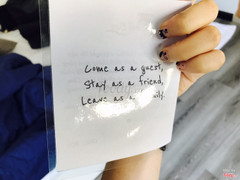 Come as a guest,
Stay as a friend,
Leave as a